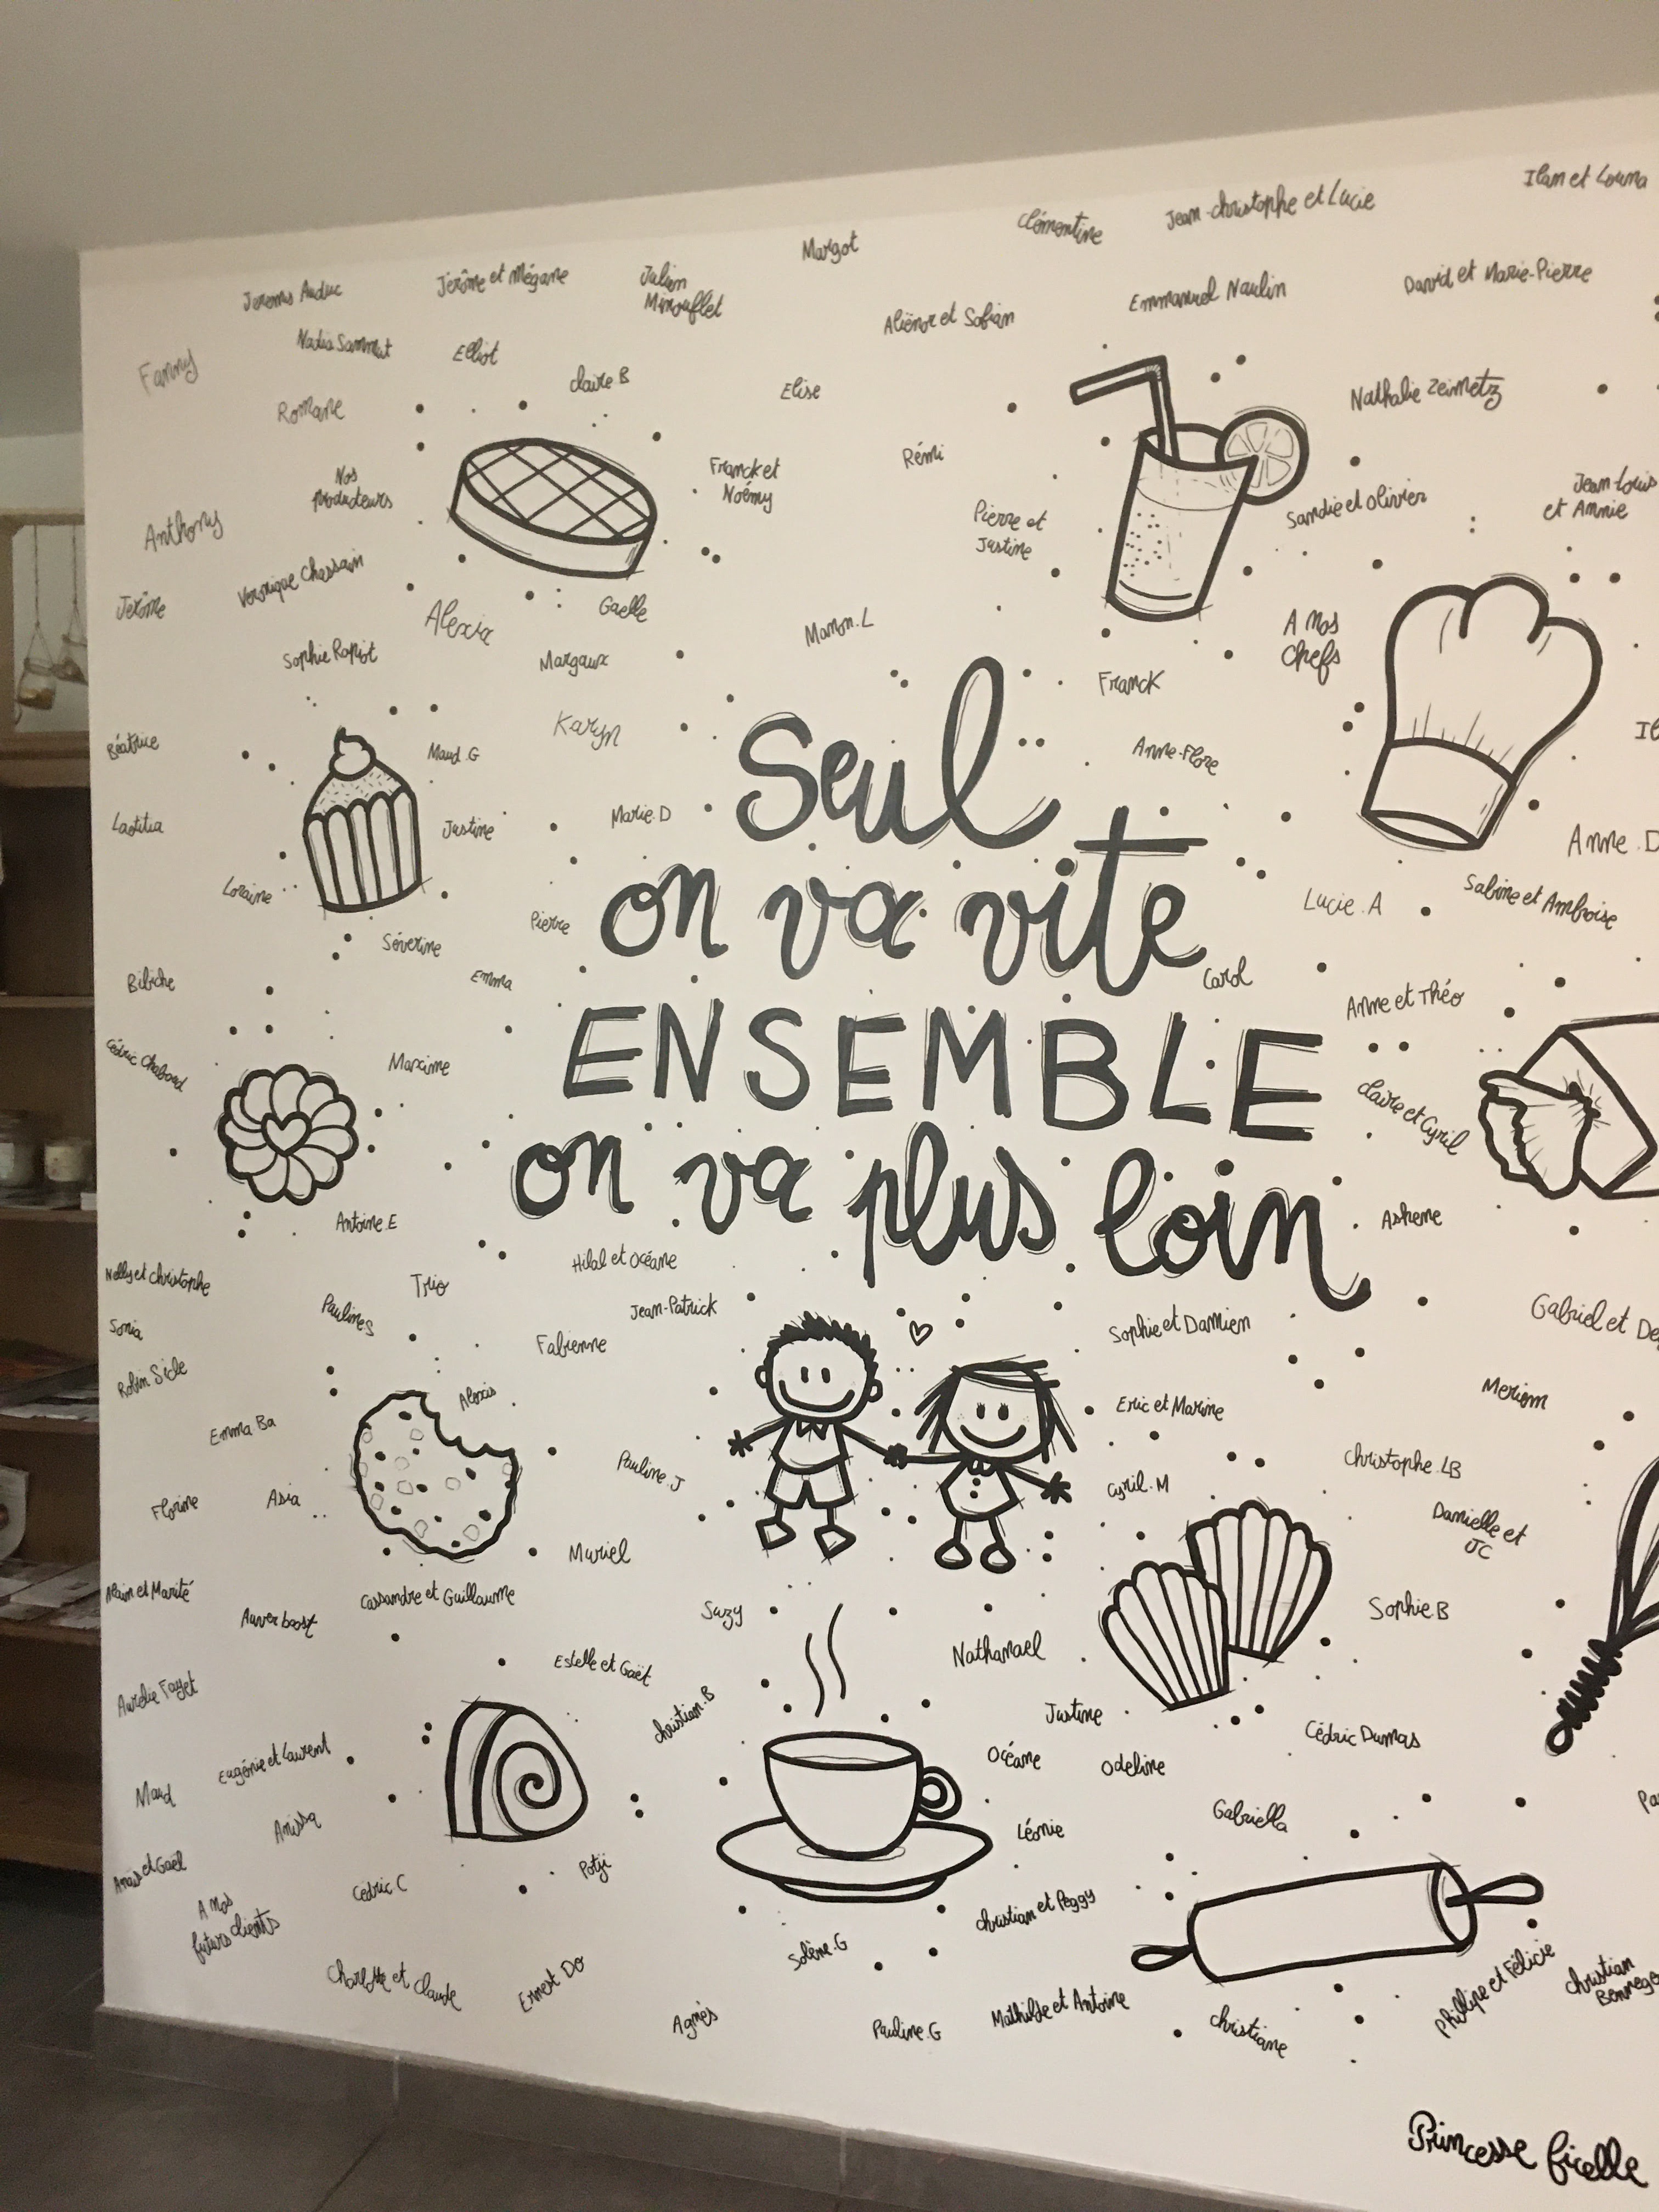 Ilan et Louna
Jean-christophe et Lucie
Clémentine
Margot
David et Marie-Pierre
Jérôme et Mégane
Julien
Minouflet
Emmanuel Naulin
Auduc
Aliénor et Sofian
Nadia Sammut
Elliot
Fanny
Claire B
Elise
Nathalie Zeimetz
Romane
Rémi
Franck et
Noémy
Nos
Producteurs
Jean-Louis
et Annie
Sandie et Olivier
Anthony
Pierre et
Justine
Veronique Chassain
Jérôme
Alexia
Gaelle
Manon.L
A nos
Chefs
Sophie Rapiot
Margaux
Franck
Karyn
Béatrice
Maud.G
Anne-Flore
Seul
Laetitia
Justine
Marie.D
Anne.D
Loraine
Lucie.A
Sabine et Ambroise
on va vite
Pierre
Séverine
Bibiche
Emma
Carol
Anne et Théo
ENSEMBLE
Cédric Chabord
Maxime
Claire et Cyril
on va plus loin
Antoine.E
Ashene
Nelly et Christophe
Trio
Hilal et Océane
Paulines
Jean-Patrick
Sonia
Fabienne
Sophie et Damien
Gabriel et
Robin
Alexis
Meriam
Emma Ba
Eric et Marine
Pauline.J
Christophe.LB
Florine
Asia
Cyril.M
Danielle et
JC
Muriel
Alain et Marité
Cassandre et Guillaume
Auverboost
Suzy
Sophie.B
Nathanael
Estelle et Gaët
Aurélie Fayet
Christian.B
Justine
Cédric Dumas
Eugénie et Laurent
Océane
Odeline
Maud
Anissa
Gabriella
Léonie
Anaïs et Gaël
Potji
Cédric C
A nos
futurs clients
Christian et Peggy
Solène.G
Charlotte et Claude
Ernest Do
Philippe et Félicie
Christian
Agnès
Pauline.G
Mathilde et Antoine
Christiane
Princesse ficelle